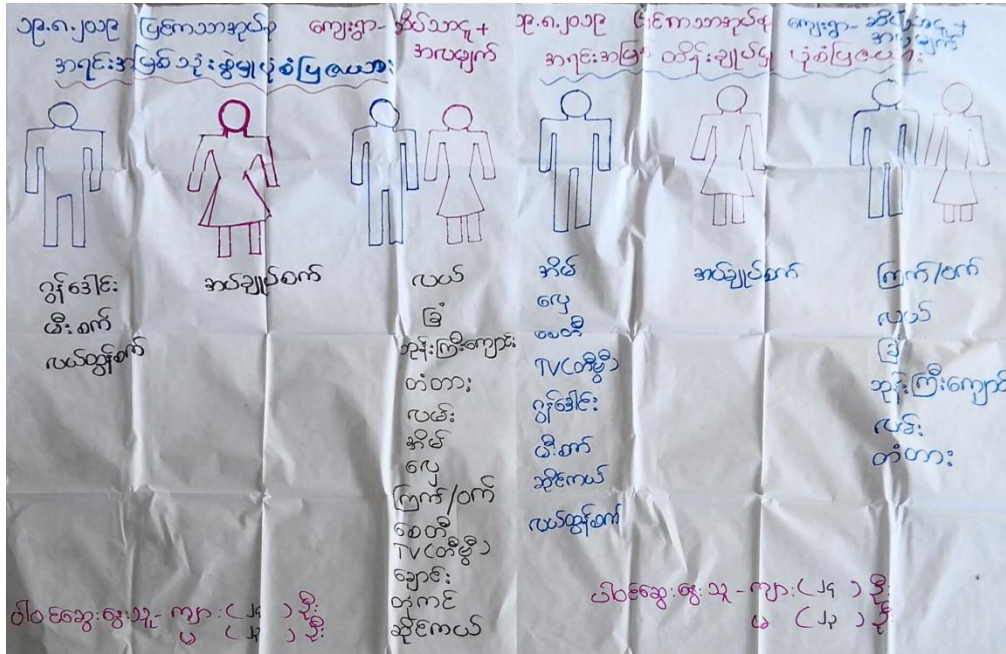 ၁၉.၈.၂၀၁၉ ပြင်ကသာအုပ်စု ကျေးရွာ- အိပ်သာငူ +
အလယ်ချက်
အရင်းအမြစ်သုံးစွဲမှုပုံစံပြဇယား
ဂွန်ဒေါင်း
မီးစက်
လယ်ထွန်စက်
အပ်ချုပ်စက်
လယ်
ခြံ
ဘုန်းကြီးကျောင်း
တံတား
လမ်း
အိမ်
လှေ
ကြက်/ဝက်
စေတီ
TV(တီဗွီ)
ချောင်း
တုံကင်
ဆိုင်ကယ်
ပါဝင်ဆွေးနွေးသူ - ကျား ( ၂၄ ) ဦး
မ ( ၂၃ ) ဦး
၁၉.၈.၂၀၁၉ ပြင်ကသာအုပ်စု ကျေးရွာ-
အရင်းအမြစ် ထိန်းချုပ်မှု ပုံစံပြဇယား
အိမ်
လှေ
စေတီ
TV(တီဗွီ)
ဂွန်ဒေါင်း
မီးစက်
ဆိုင်ကယ်
လယ်ထွန်စက်
အပ်ချုပ်စက်
ကြက်/ဝက်
လယ်
ခြံ
ဘုန်းကြီးကျောင်
လမ်း
တံတား
ပါဝင်ဆွေးနွေးသူ - ကျား ( ၂၄ ) ဦး
မ ( ၂၃ ) ဦး